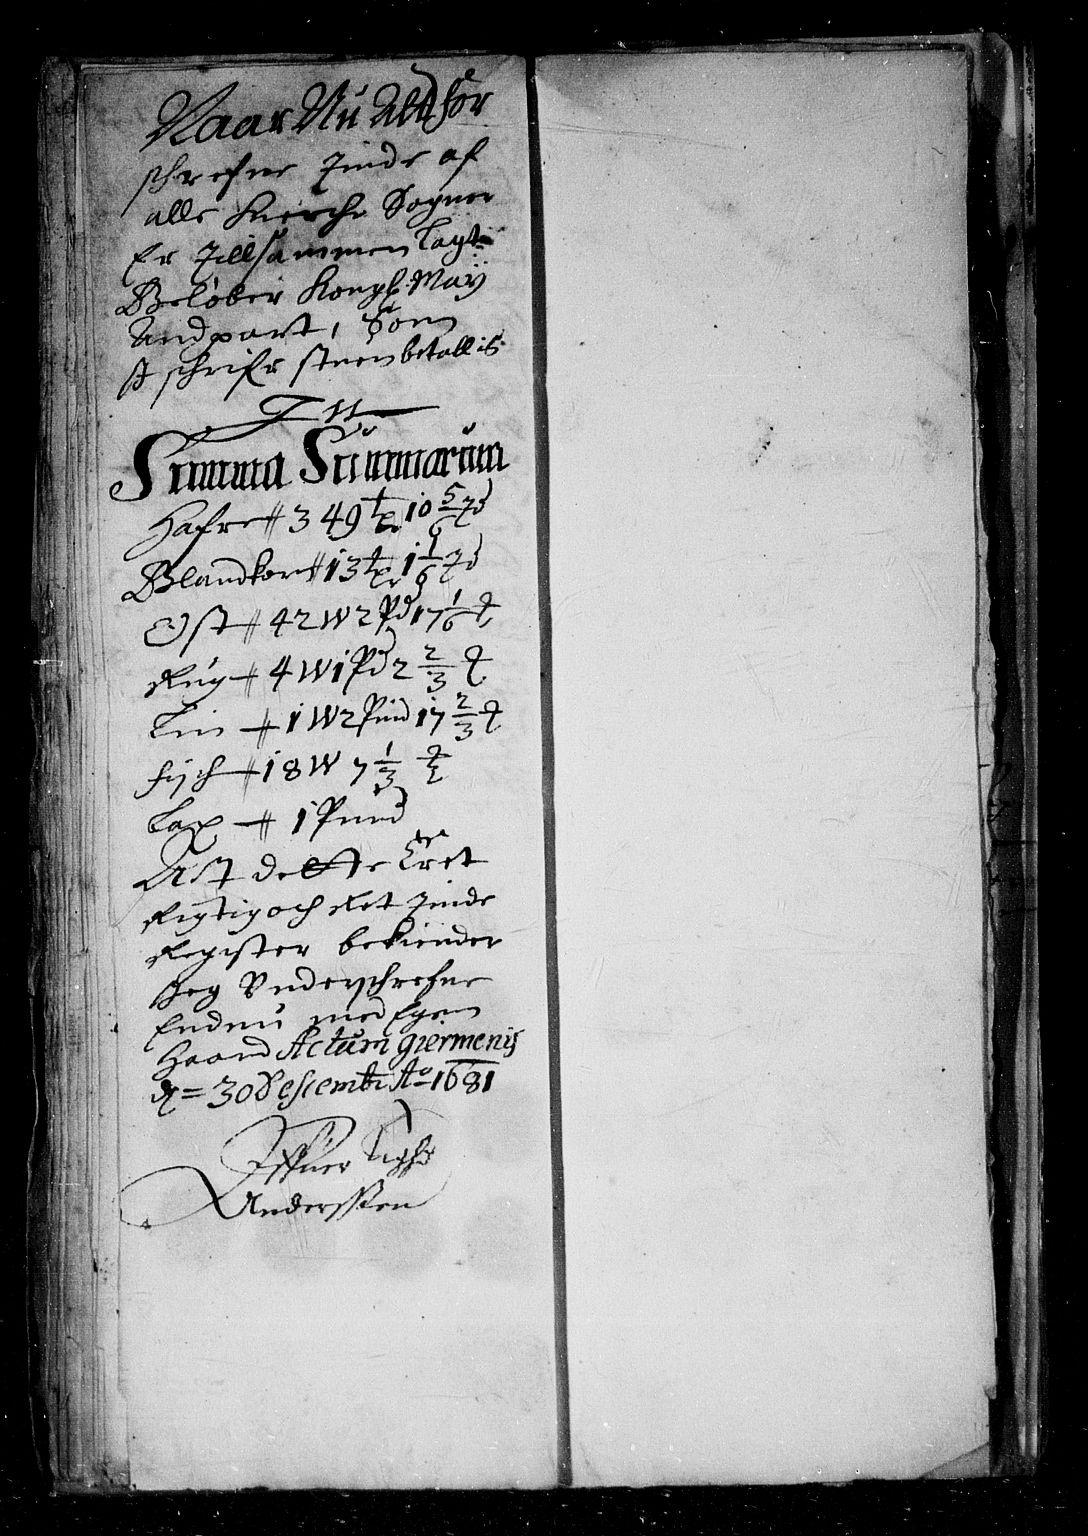 Naar Nu Alt for
schrefne Tinde af
alle Kierche Sogner
Er Tillsammen Lagt
Beløber Kongl: May:
Andpart, Som
schrifr steen betallis
Summa Summarum
Hafre # 349 tr 10 5/6
Blandkorn # 13 tr 1 1/6
Ost # 42 W 2 Pd 17 1/6
Rug # 4 W 1 Pd 2 2/3
Lin # 1 W 2 Pund 17 2/3
fisch # 18 W 7 1/3
Lax # 1 Pund
At dette Er et
Rigtig och Ret Tinde
Register bekiender
Jeg Underschrefne
Endnu med Egen
Haand Actum giermenis
d = 30 Desembr Ao 1681
Anderssen